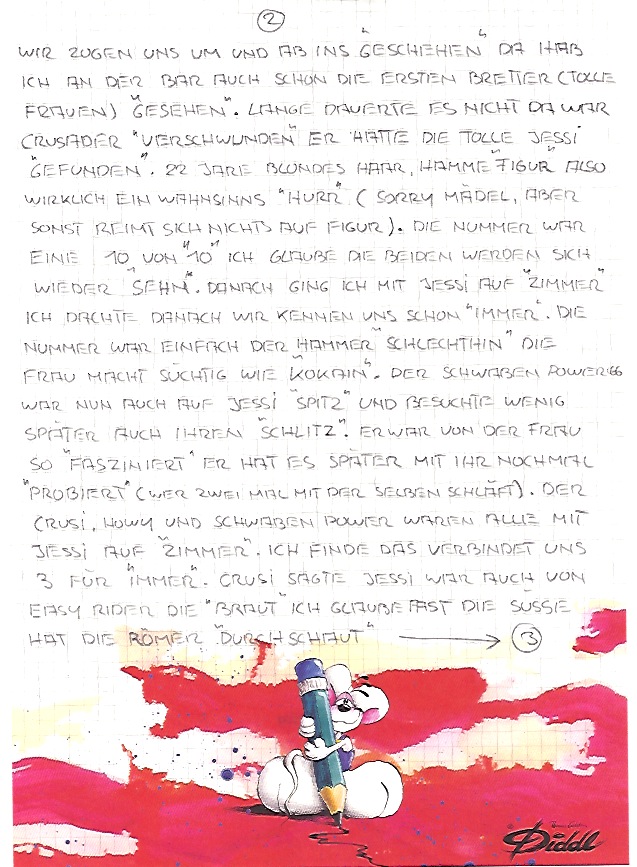 2
WIR ZOGEN UNS UM UND AB INS "GESCHEHEN" DA HAB
ICH AN DER BAR AUCH SCHON DIE ERSTEN BRETTER (TOLLE
FRAUEN) "GESEHEN". LANGE DAUERTE ES NICHT DA WAR
CRUSADER "VERSCHWUNDEN" ER HATTE DIE TOLLE JESSI
"GEFUNDEN". 22 JARE BLONDES HAAR, HAMMER "FIGUR" ALSO
WIRKLICH EIN WAHNSINNS "HURR" (SORRY MÄDEL, ABER
SONST REIMT SICH NICHTS AUF FIGUR). DIE NUMMER WAR
EINE 10 VON "10" ICH GLAUBE DIE BEIDEN WERDEN SICH
WIEDER "SEHN". DANACH GING ICH MIT JESSI AUF "ZIMMER"
ICH DACHTE DANACH WIR KENNEN UNS SCHON "IMMER". DIE
NUMMER WAR EINFACH DER HAMMER "SCHLECHTHIN" DIE
FRAU MACHT SÜCHTIG WIE "KOKAIN". DER SCHWABEN POWER66
WAR NUN AUCH AUF JESSI "SPITZ" UND BESUCHTE WENIG
SPÄTER AUCH IHREN "SCHLITZ". ER WAR VON DER FRAU
SO "FASZINIERT" ER HAT ES SPÄTER MIT IHR NOCHMAL
"PROBIERT" (WER ZWEI MAL MIT DER SELBEN SCHLÄFT). DER
CRUSI, HOWY UND SCHWABEN POWER WAREN ALLE MIT
JESSI AUF "ZIMMER". ICH FINDE DAS VERBINDET UNS
3 FÜR "IMMER". CRUSI SAGTE JESSI WAR AUCH VON
EASY RIDER DIE "BRAUT" ICH GLAUBE FAST DIE SÜSSE
HAT DIE RÖMER "DURCHSCHAUT" → 3
Diddl